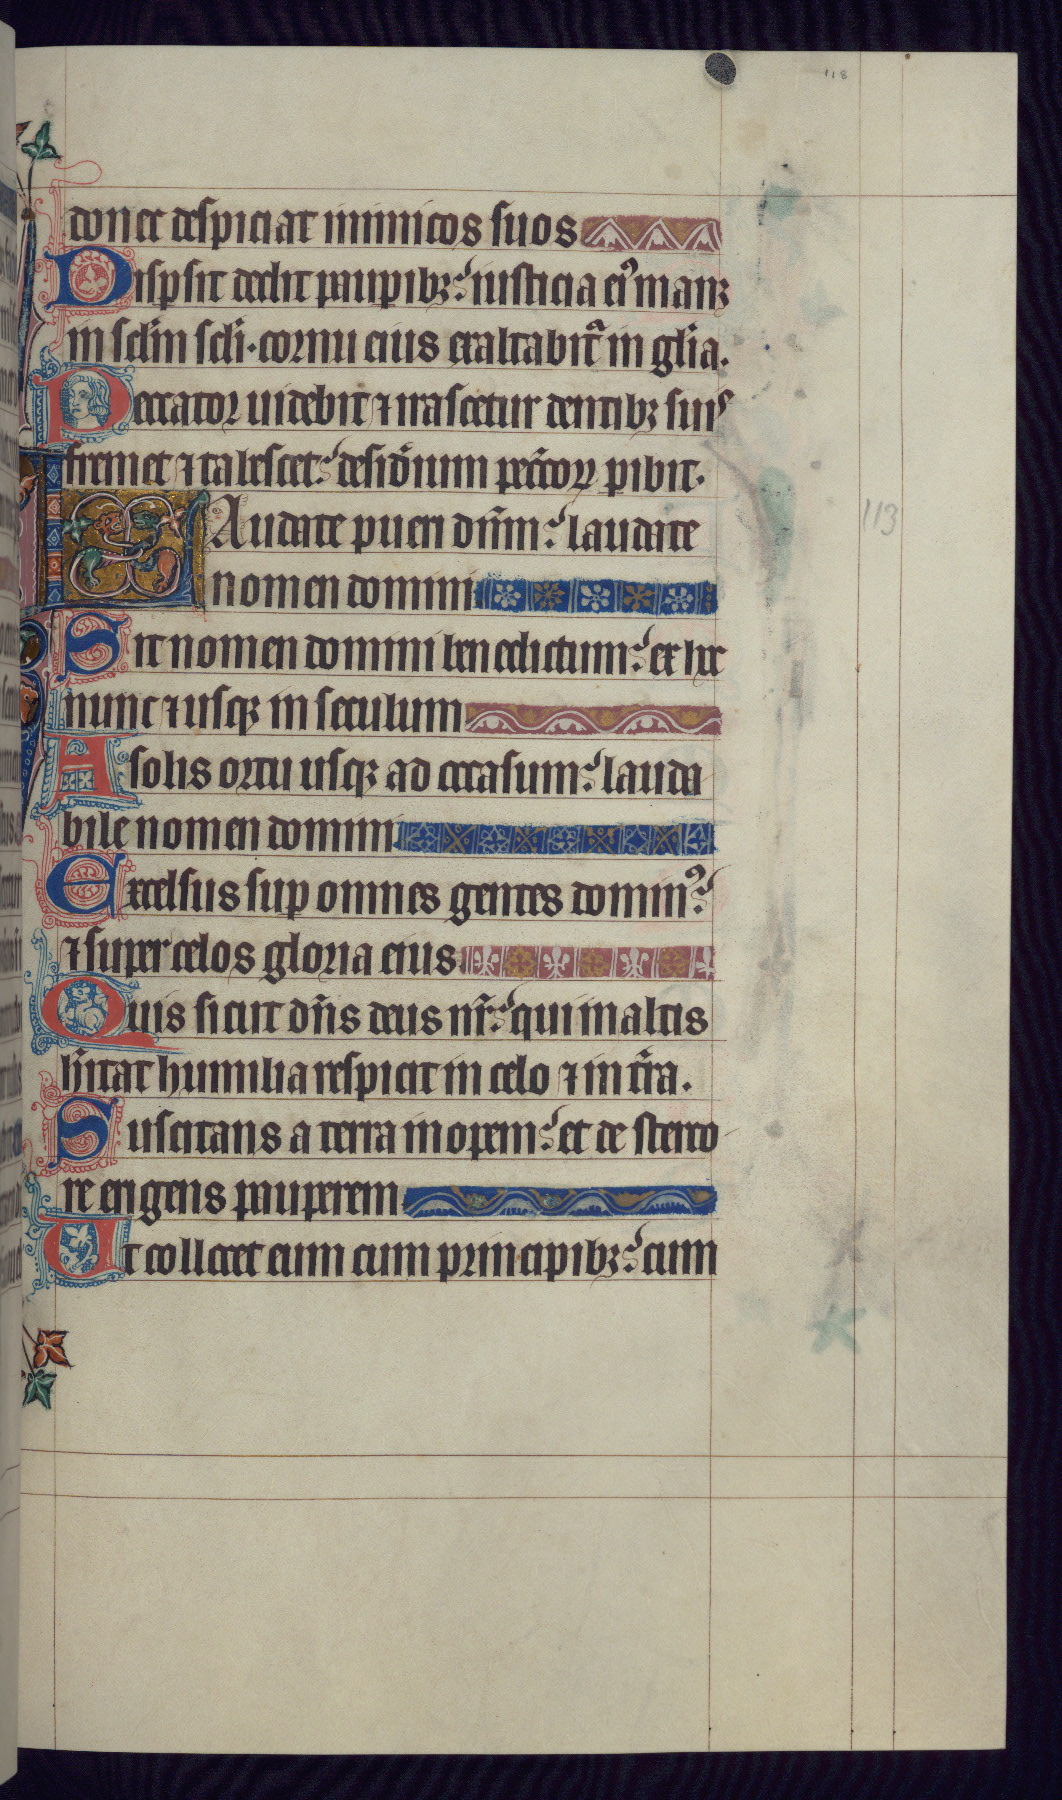 118
donec despiciat inimicos suos
Dispsit dedit paupibꝫ: iusticia eiꝰ manꝫ
in sc̄lm sc̄li. cornu eius exaltabit᷑ in gl̄ia.
Peccator uidebit ⁊ irascetur dentibꝫ suis
fremet ⁊ tabescet: desid̄ium pecc̄oꝝ pibit.
Laudate pueri dn̄m: laudate
nomen domini
Sit nomen domini benedictum: ex hoc
nunc ⁊ usqꝫ in seculum
A solis ortu usqꝫ ad occasum: lauda
bile nomen domini
Excelsus sup omnes gentes dominꝰ:
⁊ super celos gloria eius
Quis sicut dn̄s deus nr̄: qui in altis
h̄itat humilia respicit in celo ⁊ in t̄ra.
Suscitans a terra inopem: et de sterco
re erigens pauperem
Ut collocet eum cum principibꝫ: cum
113